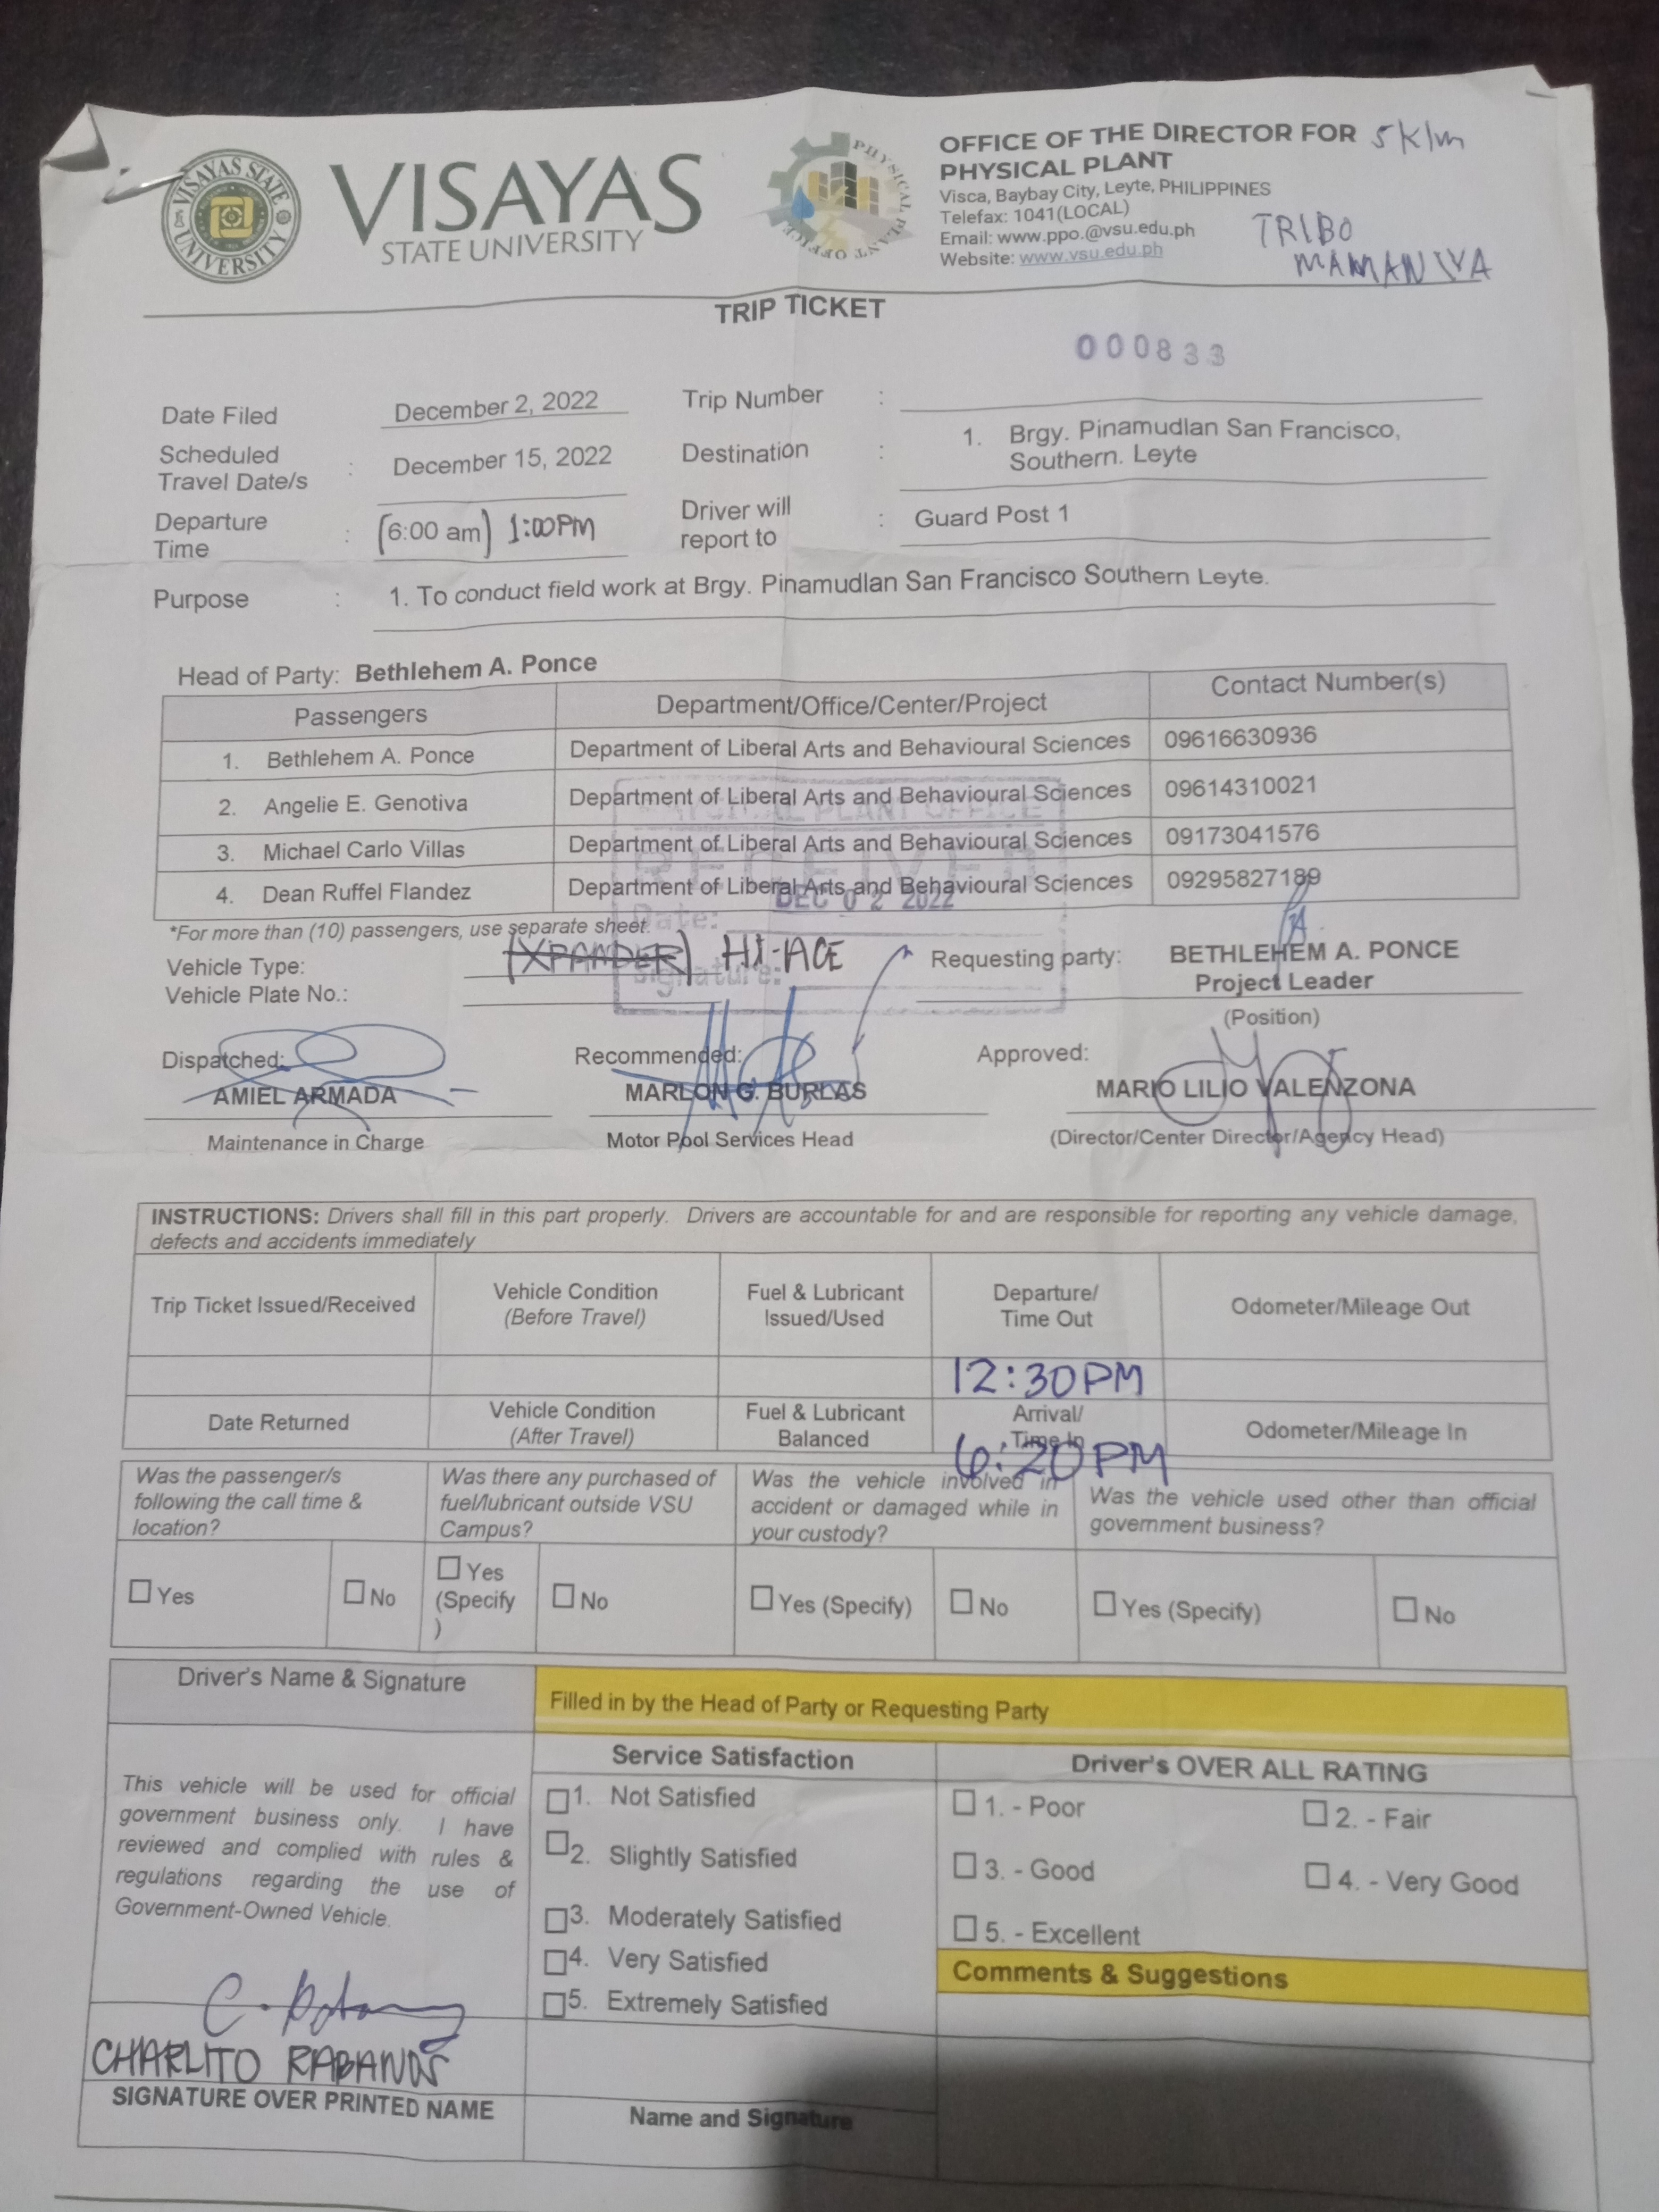 VISAYAS STATE UNIVERSITY
VISAYAS
STATE UNIVERSITY
PHYSICAL PLANT OFFICE
OFFICE OF THE DIRECTOR FOR 5 k/m
PHYSICAL PLANT
Visca, Baybay City, Leyte, PHILIPPINES
Telefax: 1041(LOCAL)
Email: www.ppo.@vsu.edu.ph
Website: www.vsu.edu.ph
TRIBO
MAMANWA
TRIP TICKET
000833
Date Filed December 2, 2022 Trip Number :
Scheduled Travel Date/s : December 15, 2022 Destination : 1. Brgy. Pinamudlan San Francisco,
Southern. Leyte
Departure Time : (6:00 am) 1:00PM Driver will report to : Guard Post 1
Purpose : 1. To conduct field work at Brgy. Pinamudlan San Francisco Southern Leyte.
Head of Party: Bethlehem A. Ponce
Passengers Department/Office/Center/Project Contact Number(s)
1. Bethlehem A. Ponce Department of Liberal Arts and Behavioural Sciences 09616630936
2. Angelie E. Genotiva Department of Liberal Arts and Behavioural Sciences 09614310021
3. Michael Carlo Villas Department of Liberal Arts and Behavioural Sciences 09173041576
4. Dean Ruffel Flandez Department of Liberal Arts and Behavioural Sciences 09295827189
PHYSICAL PLANT OFFICE
RECEIVED
Date: DEC 02 2022
Signature:
*For more than (10) passengers, use separate sheet.
Vehicle Type: (XPANDER) HI-ACE
Vehicle Plate No.:
Requesting party: BETHLEHEM A. PONCE
Project Leader
(Position)
Dispatched: Recommended: Approved:
AMIEL ARMADA MARLON G. BURLAS MARIO LILIO VALENZONA
Maintenance in Charge Motor Pool Services Head (Director/Center Director/Agency Head)
INSTRUCTIONS: Drivers shall fill in this part properly. Drivers are accountable for and are responsible for reporting any vehicle damage,
defects and accidents immediately
Trip Ticket Issued/Received Vehicle Condition (Before Travel) Fuel & Lubricant Issued/Used Departure/ Time Out Odometer/Mileage Out
12:30PM
Date Returned Vehicle Condition (After Travel) Fuel & Lubricant Balanced Arrival/ Time In Odometer/Mileage In
6:20PM
Was the passenger/s following the call time & location?
Was there any purchased of fuel/lubricant outside VSU Campus?
Was the vehicle involved in accident or damaged while in your custody?
Was the vehicle used other than official government business?
Yes No Yes (Specify) No Yes (Specify) No Yes (Specify) No
Driver's Name & Signature
Filled in by the Head of Party or Requesting Party
Service Satisfaction Driver's OVER ALL RATING
This vehicle will be used for official
government business only. I have
reviewed and complied with rules &
regulations regarding the use of
Government-Owned Vehicle.
1. Not Satisfied
2. Slightly Satisfied
3. Moderately Satisfied
4. Very Satisfied
5. Extremely Satisfied
1. - Poor 2. - Fair
3. - Good 4. - Very Good
5. - Excellent
Comments & Suggestions
CHARLITO RABANOS
SIGNATURE OVER PRINTED NAME
Name and Signature